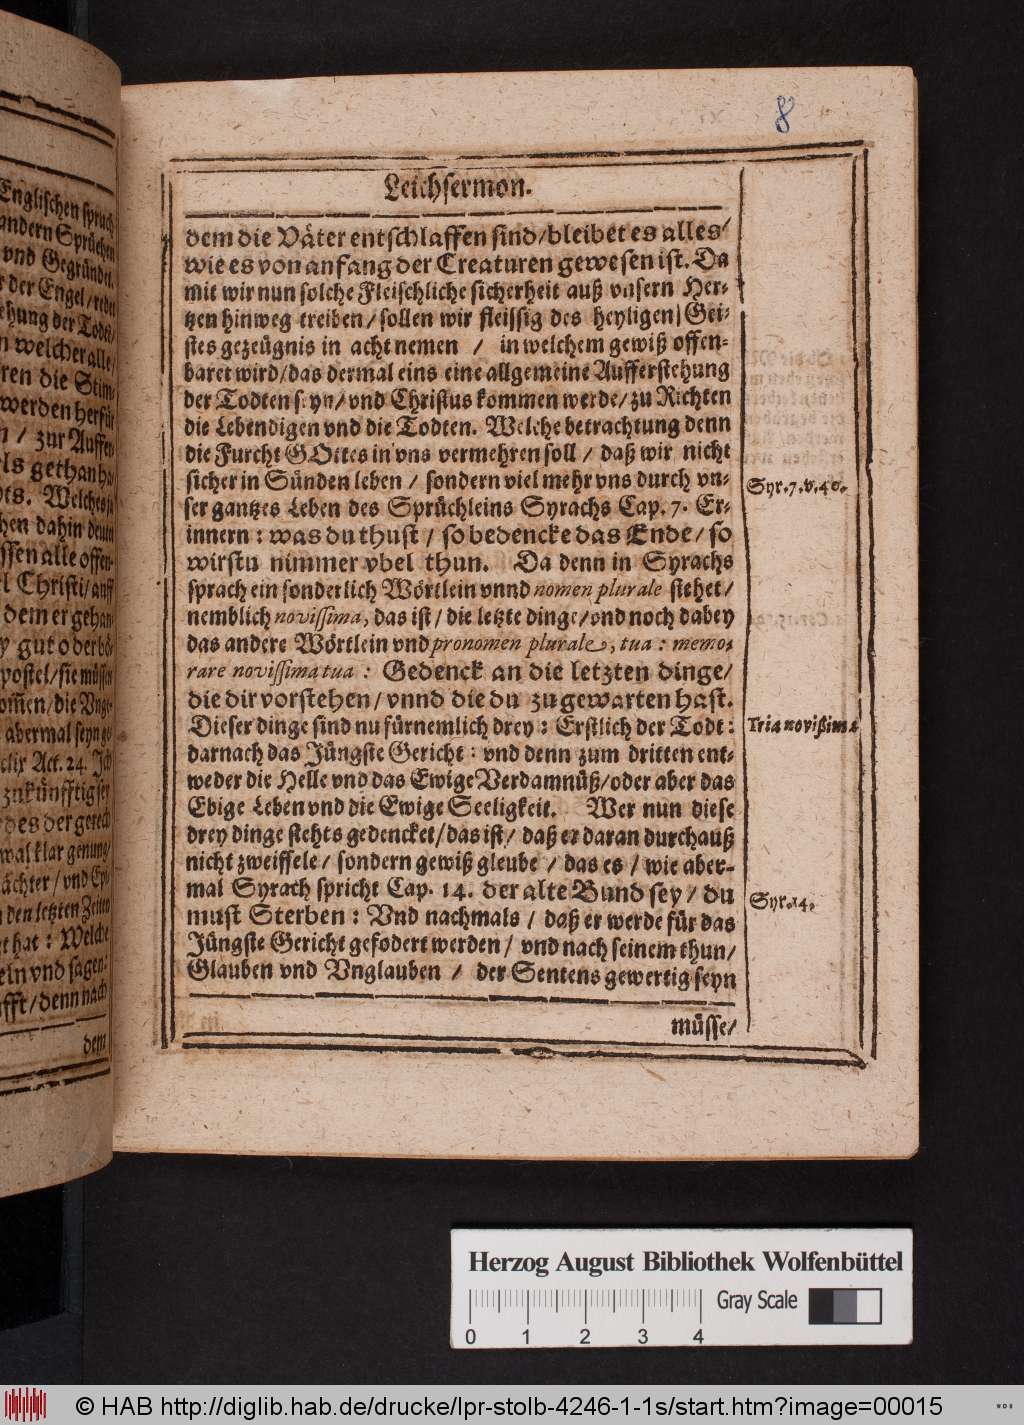 8
Leichsermon.
dem die Väter entschlaffen sind/bleibet es alles/
wie es von anfang der Creaturen gewesen ist. Da
mit wir nun solche Fleischliche sicherheit auß vnsern Her-
tzen hinweg treiben/ sollen wir fleissig des heyligen Gei-
stes gezeügnis in acht nemen / in welchem gewiß offen-
baret wird/das dermal eins eine allgemeine Aufferstehung
der Todten seyn/vnd Christus kommen werde/zu Richten
die Lebendigen vnd die Todten. Welche betrachtung denn
die Furcht GOttes in vns vermehren soll / daß wir nicht
sicher in Sünden leben / sondern viel mehr vns durch vn-
ser gantzes Leben des Sprüchleins Syrachs Cap. 7. Er-
innern: was du thust / so bedencke das Ende/ so
wirstu nimmer vbel thun. Da denn in Syrachs
sprach ein sonderlich Wörtlein vnnd nomen plurale stehet/
nemblich novissima, das ist/ die letzte dinge/vnd noch dabey
das andere Wörtlein vnd pronomen plurale, tua: memo-
rare novissima tua: Gedenck an die letzten dinge/
die dir vorstehen/ vnnd die du zugewarten hast.
Dieser dinge sind nu fürnemlich drey: Erstlich der Todt:
darnach das Jüngste Gericht: vnd denn zum dritten ent-
weder die Helle vnd das Ewige Verdamnüß/oder aber das
Ebige Leben vnd die Ewige Seeligkeit. Wer nun diese
drey dinge stehts gedencket/das ist/ daß er daran durchauß
nicht zweiffele/ sondern gewiß gleube / das es / wie aber-
mal Syrach spricht Cap. 14. der alte Bund sey / du
must Sterben: Vnd nachmals / daß er werde für das
Jüngste Gericht gefodert werden / vnd nach seinem thun/
Glauben vnd Vnglauben / der Sentens gewertig seyn
müsse/
Syr. 7. v. 40.
Tria novißima
Syr. 14.
Englischen sprach
andern Sprüchen
vnd Gegründet.
der Engel/ redet
der Todten/
welcher alle/
die Stim-
werden herfür
/ zur Auffer-
gethan ha-
Welches
dahin deuten
alle offen-
Christi/ auff
dem er gehan-
gut oder bö-
sie müssen
/die Vnge-
abermal seyn ge-
Act. 24. Ich
zukünfftig sey
des der gerech
klar genung/
/ vnd Epi-
den letzten Zeiten
hat: Welche
vnd sagen:
/denn nach
dem
Herzog August Bibliothek Wolfenbüttel
0 1 2 3 4
Gray Scale
© HAB http://diglib.hab.de/drucke/lpr-stolb-4246-1-1s/start.htm?image=00015